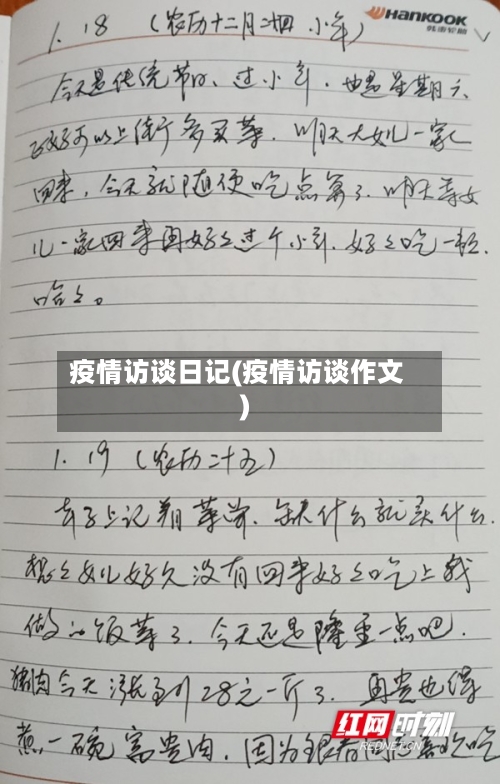 HANKOOK
韩泰轮胎
1.18 (农历十二月二十四 小年)
今天是传统节日、过小年.也是星期六.
正好可以上街多买菜.明天大女儿一家
回来,今天就随便吃点算了.明天等女
儿一家回来再好好过个小年.好好吃一顿.
哈哈。
疫情访谈日记(疫情访谈作文
)
1.19 (农历二十五)
去了上记翔菜市.缺什么就买什么.
想想女儿好久没有回来好好吃上我
做的饭菜了.今天还是隆重一点吧.
猪肉今天涨到28元一斤了.再贵也得
煮一碗富贵肉,因为很看
红网时刻
REDNET.CN